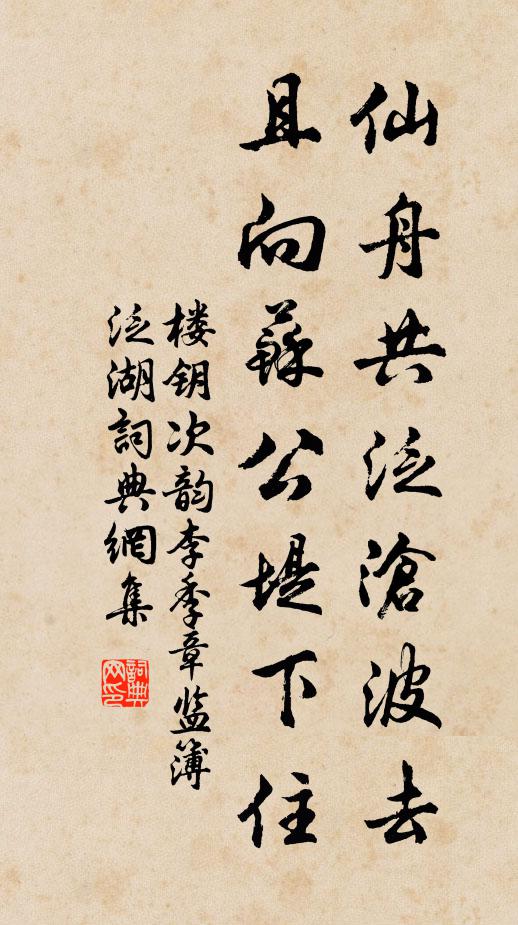 仙舟共泛滄波去
且向蘇公堤下住
楼钥次韵李季章监簿
泛湖詞典網集
詞典网印